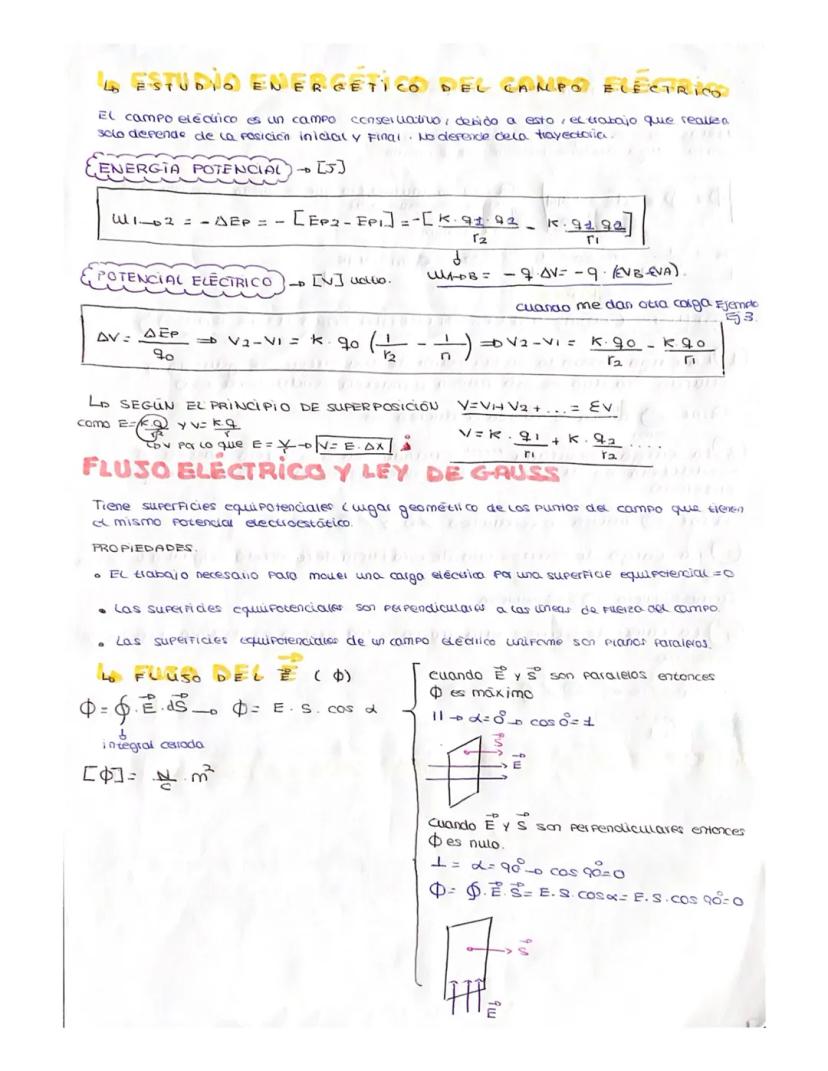 ↳ ESTUDIO ENERGÉTICO DEL CAMPO ELÉCTRICO
El campo eléctrico es un campo conservativo, debido a esto, el trabajo que realiza
solo depende de la posición inicial y final. No depende de la trayectoria.
ENERGÍA POTENCIAL → [J]
W1→2 = -ΔEp = -[Ep2 - Ep1] = -[K·q1·q2/r2 - K·q1·q2/r1]
POTENCIAL ELÉCTRICO → [V] voltio.
WA→B = -q·ΔV = -q·(VB-VA).
cuando me dan otra carga Ejemplo
Ej 3.
ΔV = ΔEp/q0 ⇒ V2-V1 = K·q0 (1/r2 - 1/r1) ⇒ V2-V1 = K·q0/r2 - K·q0/r1
↳ SEGÚN EL PRINCIPIO DE SUPERPOSICIÓN V=V1+V2+...= ΣV
como E=K·Q/r² y V=K·Q/r
V=K·q1/r1 + K·q2/r2 ....
por lo que E = V/r → V=E·Δx
FLUJO ELÉCTRICO Y LEY DE GAUSS
Tiene superficies equipotenciales (lugar geométrico de los puntos del campo que tienen
el mismo potencial electroestático.
PROPIEDADES.
• El trabajo necesario para mover una carga eléctrica por una superficie equipotencial =0
• Las superficies equipotenciales son perpendiculares a las líneas de fuerza del campo.
• Las superficies equipotenciales de un campo eléctrico uniforme son planos paralelos.
↳ FLUJO DEL E⃗ (ϕ)
ϕ = ∮·E⃗·dS⃗ → ϕ = E·S·cos α
integral cerrada
[ϕ] = N/C · m²
cuando E⃗ y S⃗ son paralelos entonces
ϕ es máximo
|| → α=0° → cos 0°=1
S⃗
E⃗
Cuando E⃗ y S⃗ son perpendiculares entonces
ϕ es nulo.
⊥ = α=90° → cos 90°=0
ϕ = ∮·E⃗·S⃗ = E·S·cos α = E·S·cos 90°=0
S⃗
E⃗